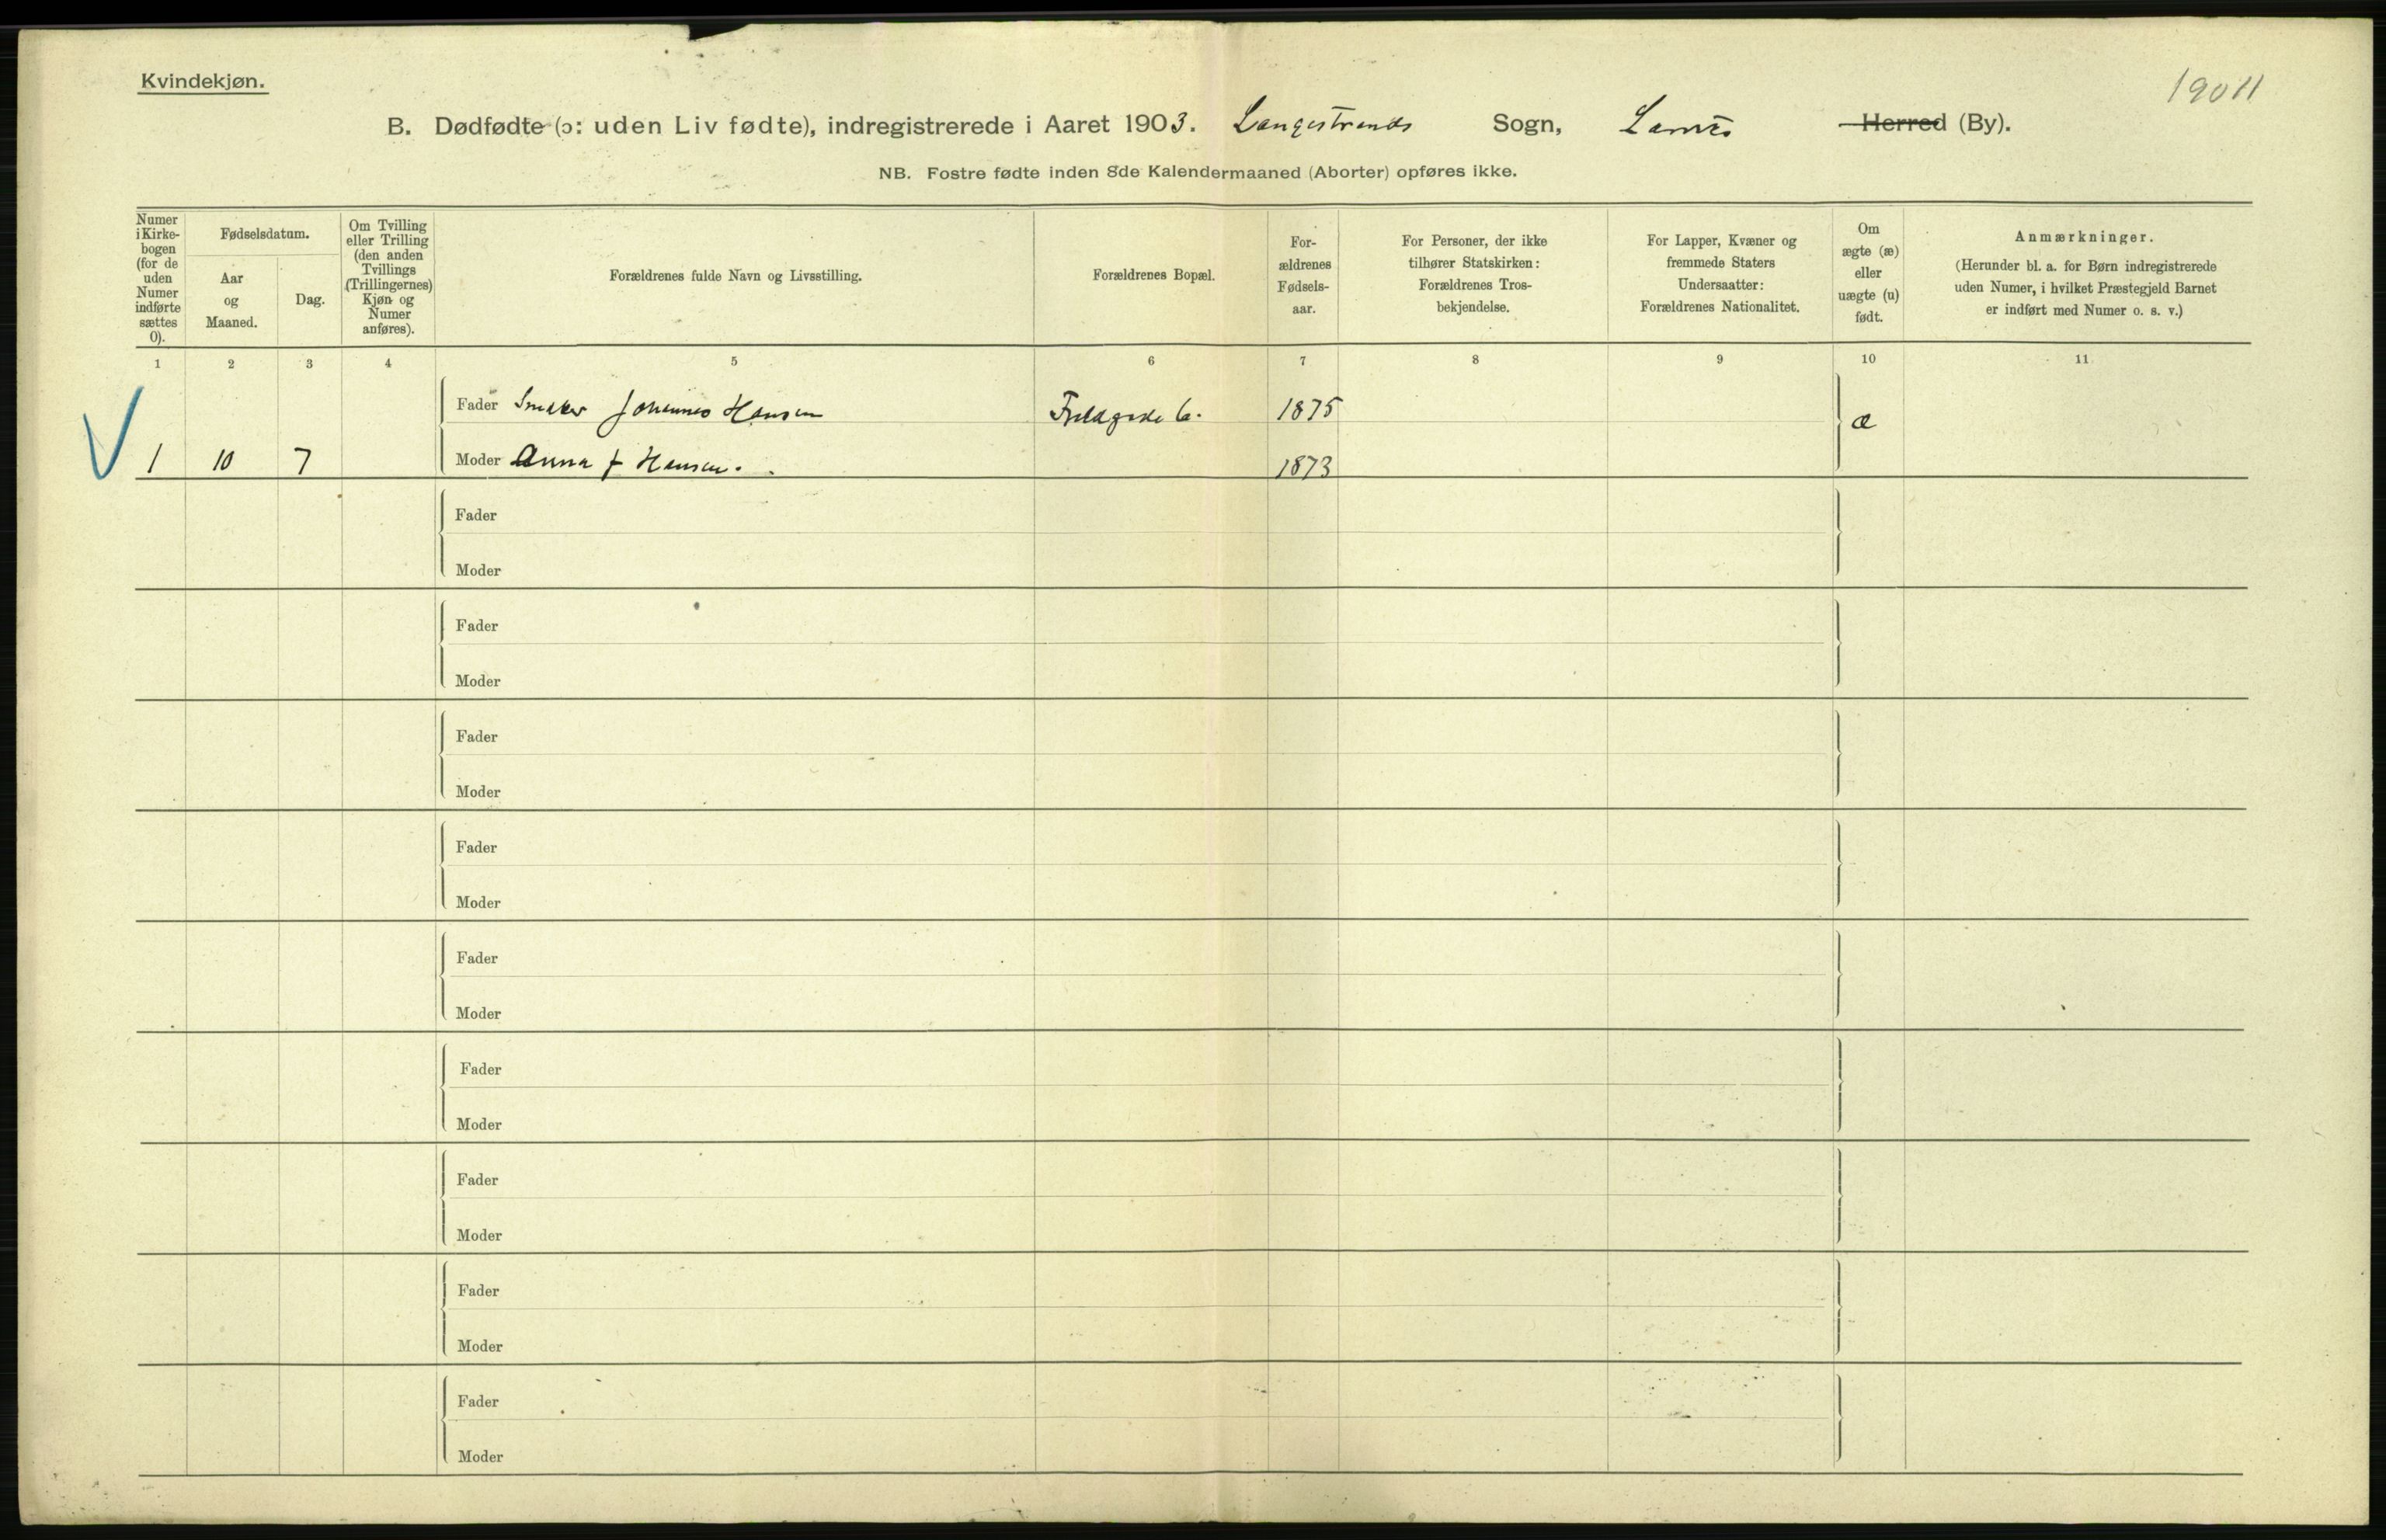 Kvindekjøn.
19011
B. Dødfødte (ɔ: uden Liv fødte), indregistrerede i Aaret 1903. Langestrands Sogn, Larviks Herred (By).
NB. Fostre fødte inden 8de Kalendermaaned (Aborter) opføres ikke.
Numer i Kirke-bogen (for de uden Numer indførte sættes 0).
Fødselsdatum.
Aar og Maaned.
Dag.
Om Tvilling eller Trilling (den anden Tvillings (Trillingernes) Kjøn og Numer anføres).
Forældrenes fulde Navn og Livsstilling.
Forældrenes Bopæl.
For-ældrenes Fødsels-aar.
For Personer, der ikke tilhører Statskirken: Forældrenes Tros-bekjendelse.
For Lapper, Kvæner og fremmede Staters Undersaatter: Forældrenes Nationalitet.
Om ægte (æ) eller uægte (u) født.
Anmærkninger.
(Herunder bl. a. for Børn indregistrerede uden Numer, i hvilket Præstegjeld Barnet er indført med Numer o. s. v.)
1 2 3 4 5 6 7 8 9 10 11
Fader Snekker Johannes Hansen 6. 1875 æ
1 10 7 Moder Anna f Hansen. 1873
Fader
Moder
Fader
Moder
Fader
Moder
Fader
Moder
Fader
Moder
Fader
Moder
Fader
Moder
Fader
Moder
Fader
Moder